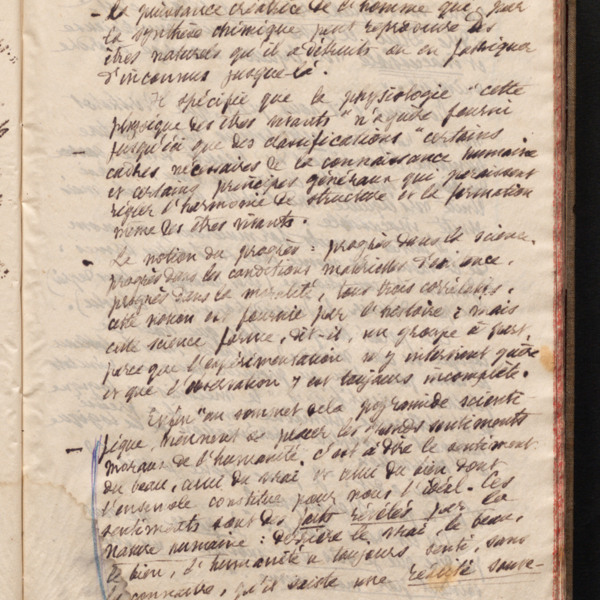 - La puissance créatrice de l'homme que par
la synthèse chimique peut reproduire des
êtres naturels qu'il a détruits ou en fabriquer
d'inconnus jusque-là.
Il spécifie que la physiologie "cette
physique des êtres vivants" n'a guère fourni
jusqu'ici que des classifications "certains
cadres nécessaires de la connaissance humaine
et certains principes généraux qui paraissent
régler l'harmonie de structure et la formation
même des êtres vivants.
- La notion du progrès : progrès dans la science,
progrès dans les conditions matérielles d'existence,
progrès dans la moralité, tous trois corrélatifs.
cette notion est fournie par l'histoire ; mais
cette science forme, dit-il, un groupe à part,
parce que l'expérimentation n'y intervient guère
et que l'observation y est toujours incomplète.
- Enfin "au sommet de la pyramide scienti
fique, viennent se placer les grands sentiments
moraux de l'humanité, c'est à dire le sentiment
du beau, celui du vrai et celui du bien dont
l'ensemble constitue pour nous l'idéal. Ces
sentiments sont des faits révélés par la
nature humaine : derrière le vrai, le beau,
le bien, l'humanité a toujours senti, sans
la connaître, qu'il existe une réalité souve-